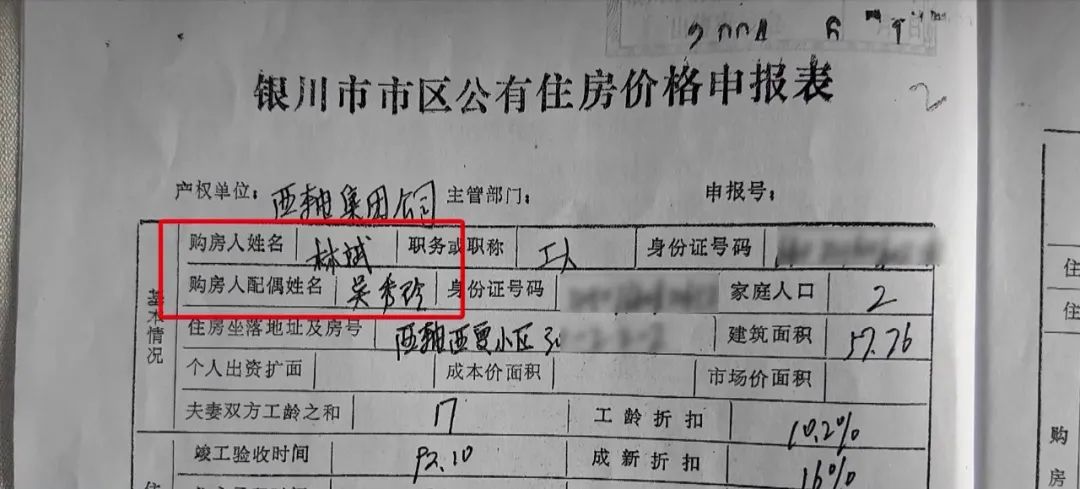 2001 6
银川市市区公有住房价格申报表
2
产权单位：西轴集团公司 主管部门： 申报号：
购房人姓名 林斌 职务或职称 工人 身份证号码
购房人配偶姓名 吴秀玲 身份证号码 家庭人口 2
基本情况
住房坐落地址及房号 西轴西夏小区 建筑面积 57.76
个人出资扩面 成本价面积 市场价面积
夫妻双方工龄之和 17 工龄折扣 10.2%
竣工验收时间 92.10 成新折扣 16%
住
住
住
购
房